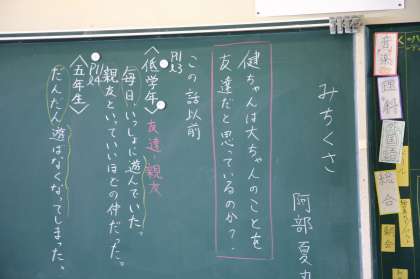 みちくさ
阿部夏丸
健ちゃんは大ちゃんのことを
友達だと思っているのか？
この話以前
P11
l3
〈低学年〉
友達・親友
毎日、いっしょに遊んでいた。
親友といっていいほどの仲だった。
P11
l4
〈五年生〉
だんだん遊ばなくなってしまった。
音楽
理科
外国語
総合